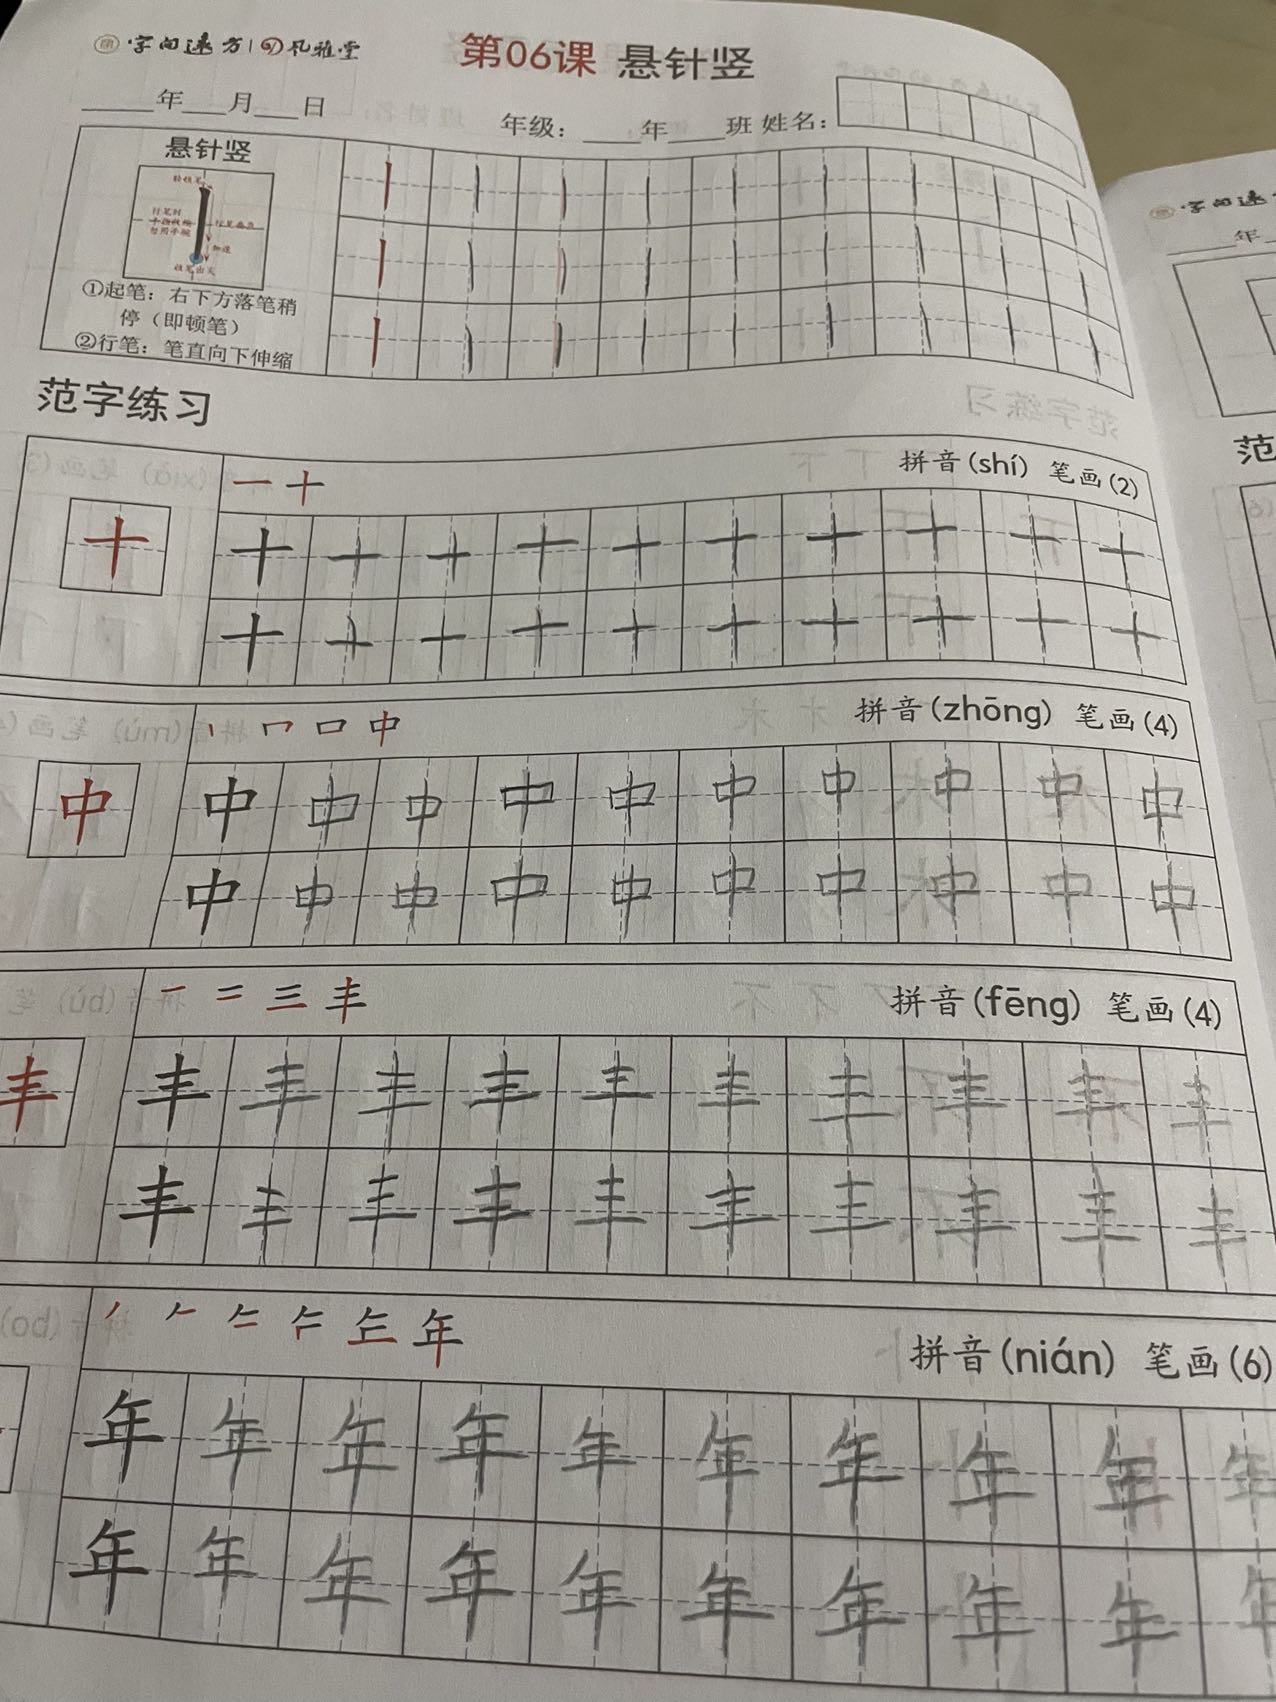 字向远方 | 风雅堂
第06课 悬针竖
____年___月___日 年级：____年____班 姓名：
悬针竖
轻顿笔
行笔时
手指收缩
勿用手腕
行笔垂直
加速
提笔出尖
①起笔：右下方落笔稍
停（即顿笔）
②行笔：笔直向下伸缩
范字练习
一 十 拼音(shí) 笔画(2)
十
十 十 十 十 十 十 十 十 十 十
十 十 十 十 十 十 十 十 十 十
丨 冂 口 中 拼音(zhōng) 笔画(4)
中
中 中 中 中 中 中 中 中 中 中
中 中 中 中 中 中 中 中 中 中
一 二 三 丰 拼音(fēng) 笔画(4)
丰
丰 丰 丰 丰 丰 丰 丰 丰 丰 丰
丰 丰 丰 丰 丰 丰 丰 丰 丰 丰
年 拼音(nián) 笔画(6)
年 年 年 年 年 年 年 年 年 年
年 年 年 年 年 年 年 年 年 年
字向远
____年
范